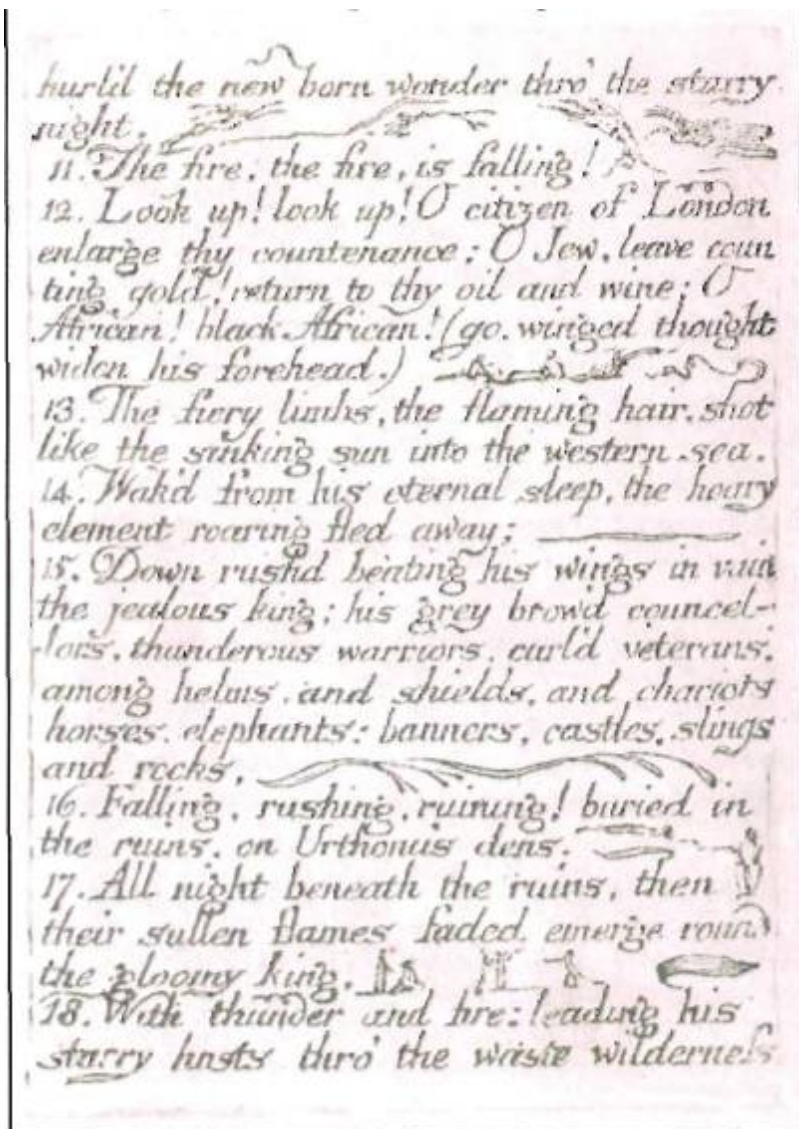 hurl'd the new born wonder thro' the starry
night.
11. The fire, the fire, is falling!
12. Look up! look up! O citizen of London
enlarge thy countenance; O Jew, leave coun
ting gold! return to thy oil and wine; O
African! black African! (go. winged thought
widen his forehead.)
13. The fiery limbs, the flaming hair, shot
like the sinking sun into the western sea.
14. Wak'd from his eternal sleep, the hoary
element roaring fled away;
15. Down rush'd beating his wings in vain
the jealous king; his grey brow'd councel-
lors, thunderous warriors, curl'd veterans,
among helms, and shields, and chariots
horses, elephants: banners, castles, slings
and rocks,
16. Falling, rushing, ruining! buried in
the ruins, on Urthona's dens.
17. All night beneath the ruins, then
their sullen flames faded emerge round
the gloomy king.
18. With thunder and fire: leading his
starry hosts thro' the waste wilderness